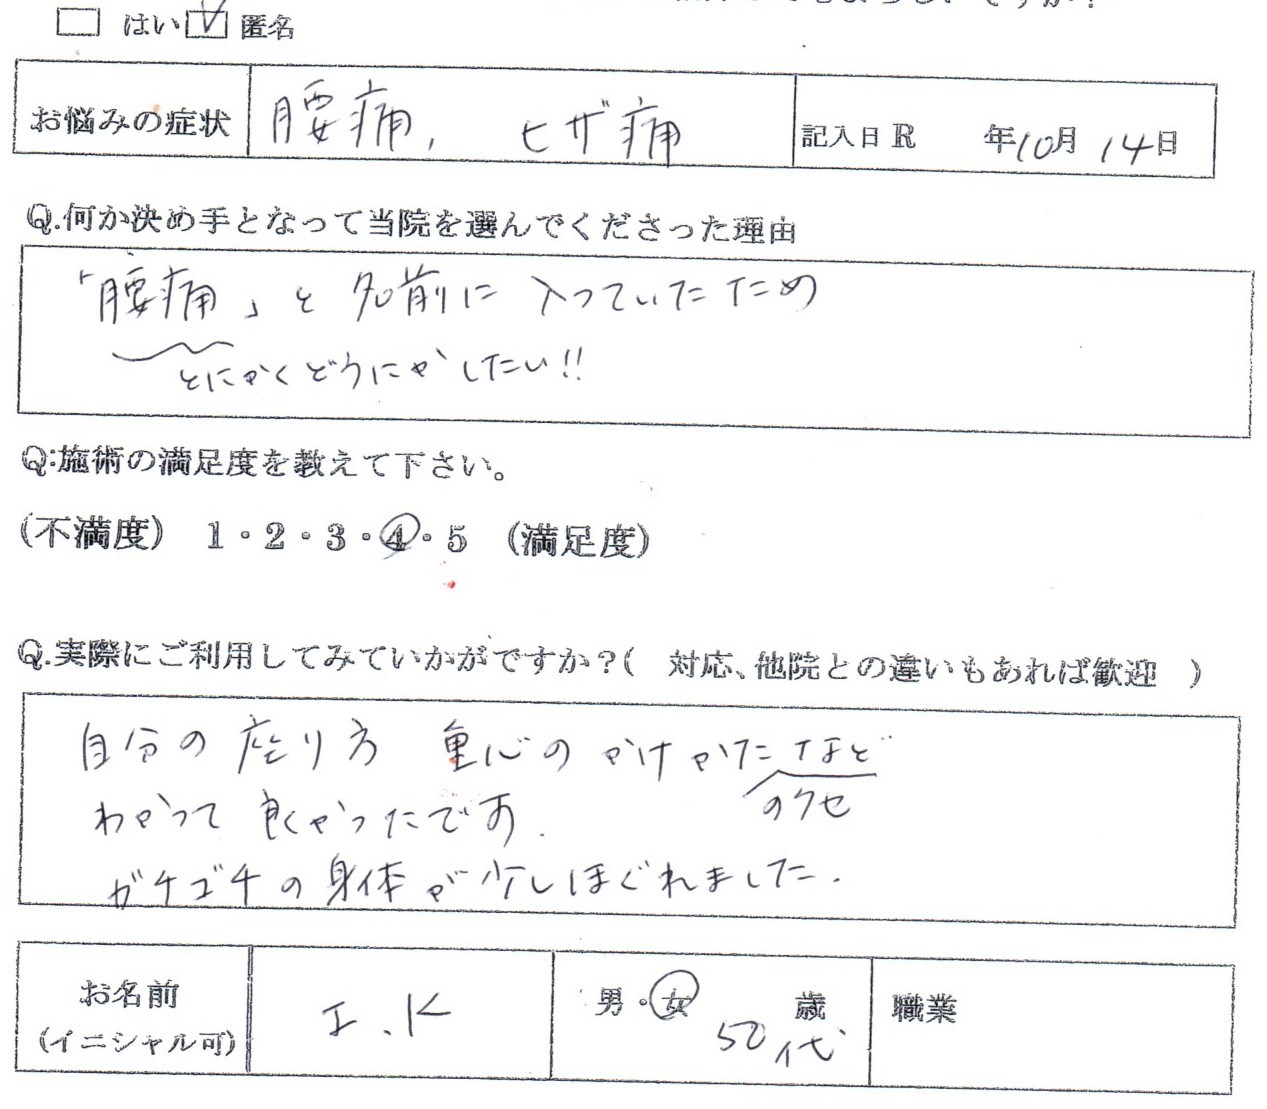 はい 匿名
お悩みの症状 腰痛, ヒザ痛 記入日R 年10月14日
Q.何か決め手となって当院を選んでくださった理由
「腰痛」と名前に入っていたため
とにかくどうにかしたい!!
Q:施術の満足度を教えて下さい。
(不満度) 1・2・3・4・5 (満足度)
Q.実際にご利用してみていかがですか?( 対応、他院との違いもあれば歓迎 )
自分の座り方 重心のかけかたなど
のクセ
わかって良かったです.
ガチゴチの身体が少しほぐれました.
お名前 I.K 男・女 歳 職業
(イニシャル可) 50代